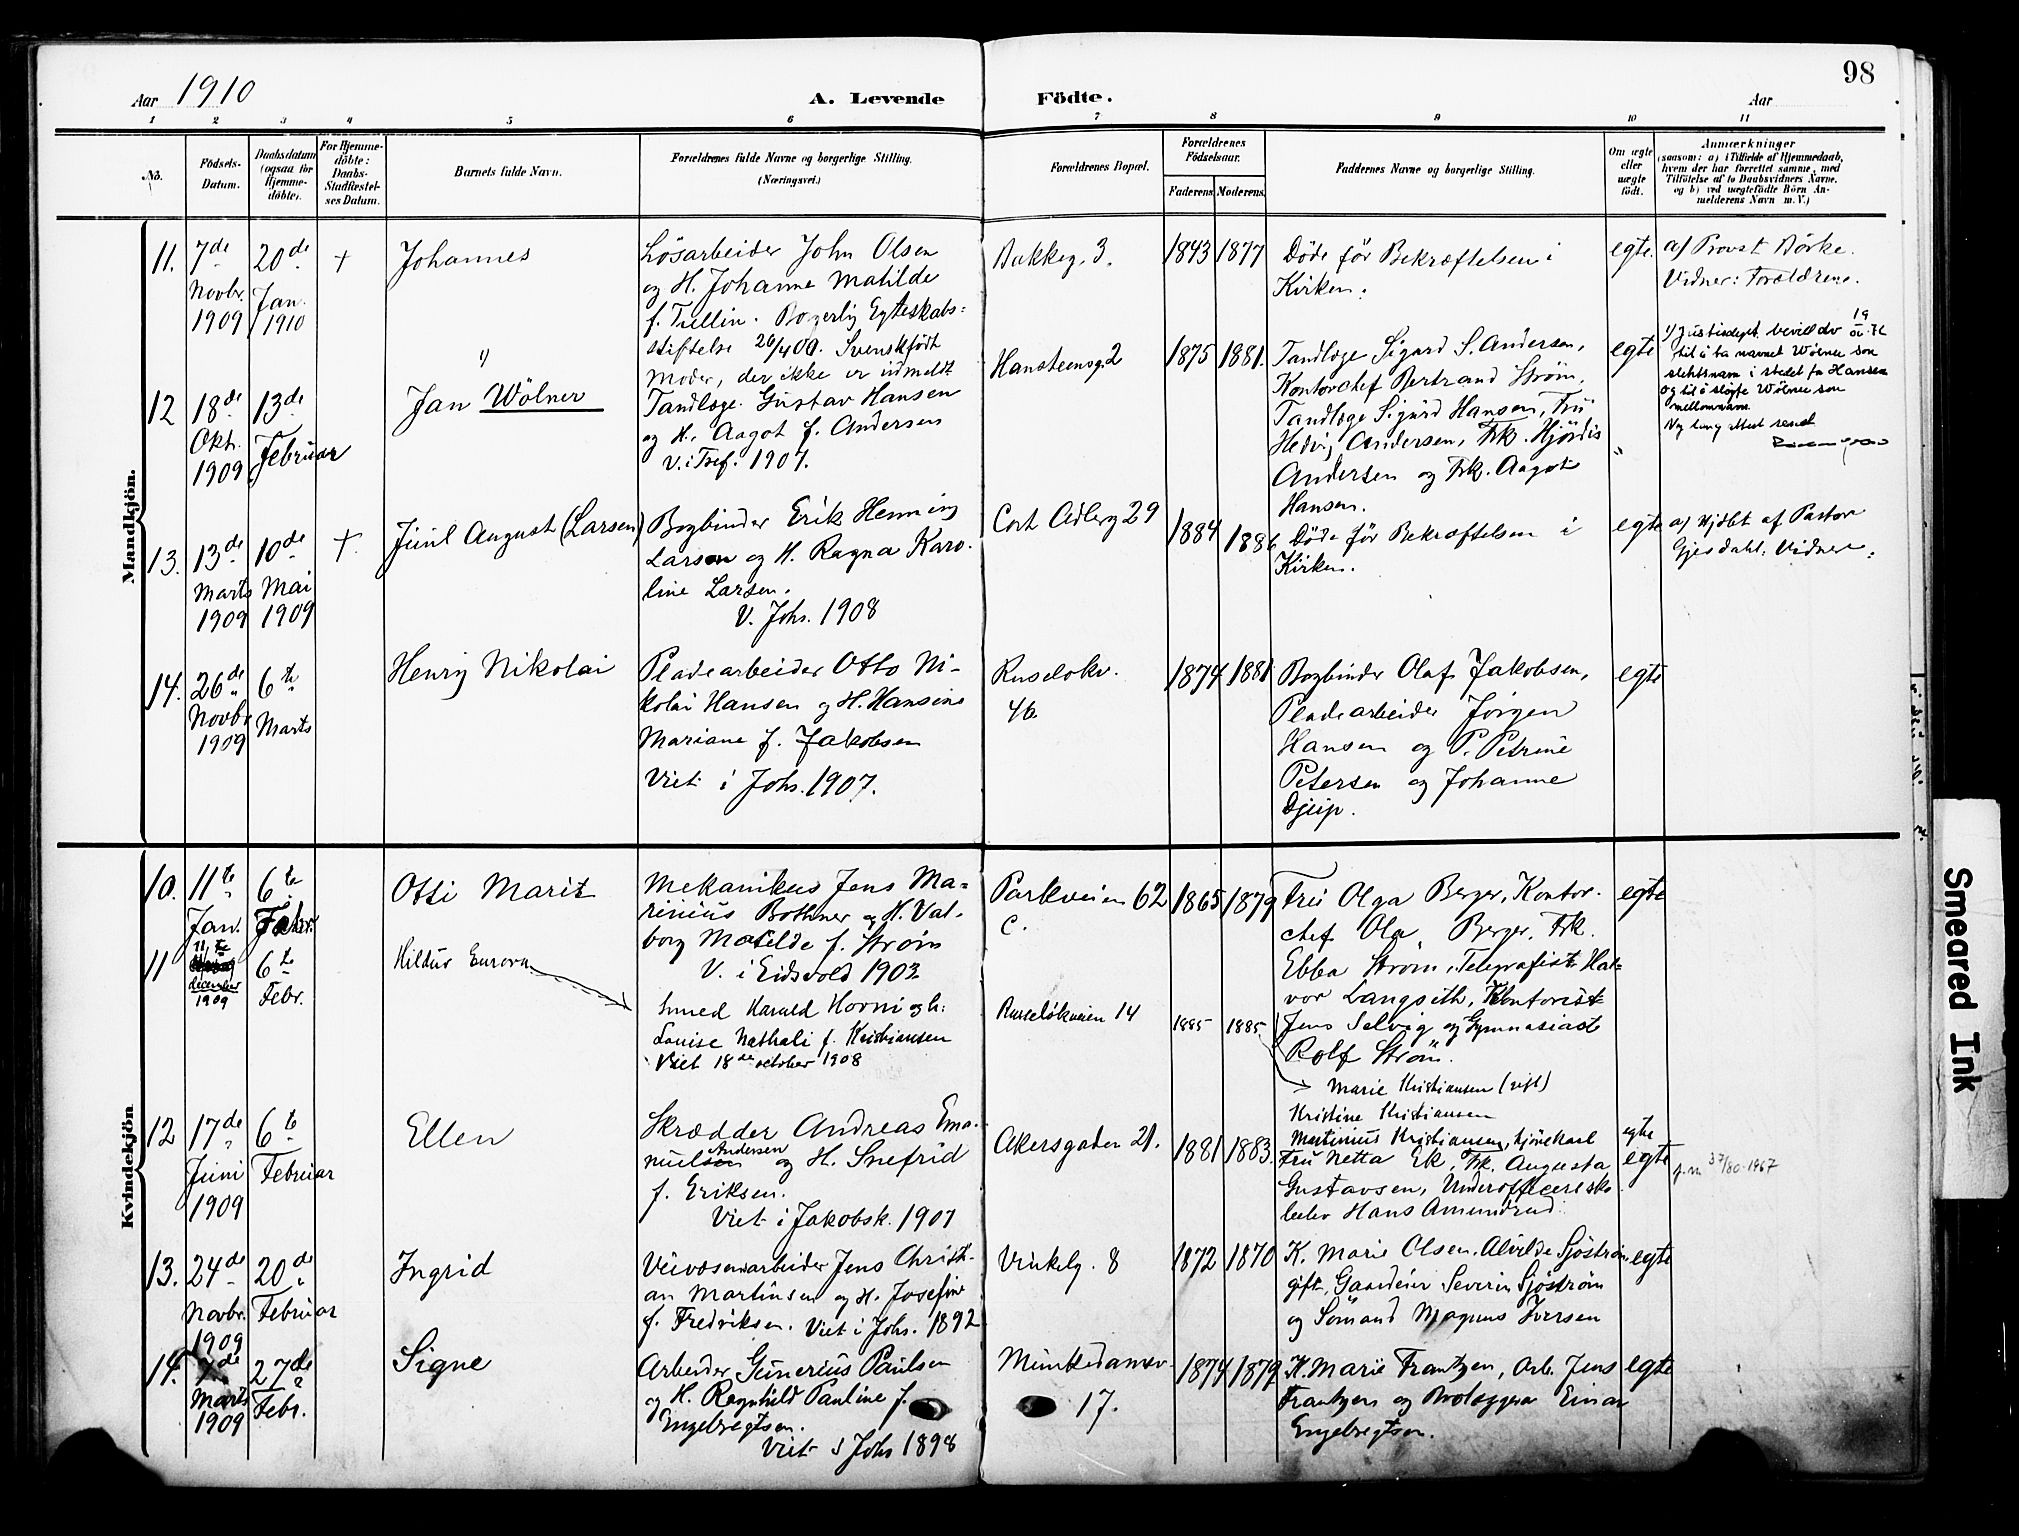 98
Aar 1910
A. Levende Födte.
Aar
1 2 3 4 5 6 7 8 9 10 11
No.
Födsels-
Datum.
Daabsdatum
(ogsaa for
Hjemme-
døbte).
For Hjemme-
döbte:
Daabs-
Stadfæstel-
ses Datum.
Barnets fulde Navn.
Forældrenes fulde Navne og borgerlige Stilling.
(Næringsvei.)
Forældrenes Bopæl.
Forældrenes
Födselsaar.
Faderens
Moderens.
Faddernes Navne og borgerlige Stilling.
Om ægte
eller
uægte
født.
Anmærkninger
(saasom: a) i Tilfælde af Hjemmedaab,
hvem der har forrettet samme, med
Tilföielse af to Daabsvidners Navne,
og b) ved uægtefödte Börn An-
melderens Navn m. V.)
Mandkjön.
11.
7de
Novbr.
1909
20de
Jan.
1910
+
Johannes
Lösarbeider John Olsen
og H. Johanne Matilde
f. Tullin. Borgerlig Egteskabs-
stiftelse 26/4 00. Svenskfödt
Moder, der ikke er udmeldt
Bakkeg. 3.
1843
1877
Döde för Bekræftelsen i
Kirken.
egte.
a) Provst Börke.
Vidner: Forældrene.
12
18de
Okt.
1909
13de
Februar
1)
Jan Wölner
Tandlæge Gustav Hansen
og H. Aagot f. Andersen
V. i Tref. 1907.
Hansteensg. 2
1875
1881.
Tandlæge Sigurd S. Andersen,
Kontorchef Bertrand Ström,
Tandlæge Sigurd Hansen, Fru
Hedvig Andersen, Frk. Hjördis
Andersen og Frk. Aagot
Hansen.
egte
1) Justisdept. bevill. dv
til å ta navnet Wölner som
slektsnavn i stedet for Hansen
og til å sløife Wölner som
mellomnavn.
Ny lang attest sendt
13.
13de
Marts
1909
10de
Mai
1909
+
Juul August (Larsen)
Bogbinder Erik Henning
Larsen og H. Ragna Karo-
line Larsen.
V. Johs. 1908
Cort Adlerg 29
1884
1886
Döde för Bekræftelsen i
Kirken.
egte
a) Hjdbt af Pastor
Gjesdahl. Vidner:
14.
26de
Novbr
1909
6te
Marts
Henry Nikolai
Pladearbeider Otto Ni-
kolai Hansen og H. Hansine
Mariane f. Jakobsen
Viet i Johs. 1907.
Ruselökv.
46
1874
1881
Bogbinder Olaf Jakobsen,
Pladearbeider Jörgen
Hansen og P. Petrine
Petersen og Johanne
Djup.
egte
Kvindekjön
10.
11te
Jan.
6te
Febr.
Otti Marit
Mekanikus Jens Ma-
rinius Bothner og H. Val-
borg Matilde f. Ström
V. i Eidsvold 1903
Parkveien 62
C.
1865
1879
Fru Olga Berger, Kontor-
chef Ola Berger, Frk.
Ebba Ström, Telegrafist Hal-
vor Langseth, Kontorist
Jens Selvig og Gymnasiast
Rolf Ström.
egte
11
11te
december
1909
6te
Febr.
Hildur Eurora
Smed Harald Hovni og h:
Louise Nathali f. Kristiansen
Viet 18de october 1908
Ruselökveien 14
1885
1885
Marie Kristiansen (gift)
Kristine Kristiansen
Martinius Kristiansen,
egte
12
17de
Juni
1909
6te
Februar
Ellen
Skrædder Andreas Ema-
nuelsen Andersen og H. Snefrid
f. Eriksen.
Viet i Jakobsk. 1907
Akersgaden 21.
1881
1883.
Fru Netta Ek, Frk. Augusta
Gustavsen, Underofficersko-
leelev Hans Amundrud
egte
f.m 37/80-1967
13.
24de
Novbr.
1909
20de
Februar
Ingrid
Veivæsenarbeider Jens Christi-
an Martinsen og H. Josefine
f. Fredriksen. Viet i Johs. 1892
Vinkelg. 8
1872
1870
K. Marie Olsen, Alvilde Sjöström
gift, Severin Sjöström
og Sömand Magnus Iversen
egte
14.
7de
Marts
1909
27de
Febr.
Signe
Arbeider Gunerius Paulsen
og H. Ragnhild Pauline f.
Engebregtsen.
Viet i Johs 1898
Munkedamsv.
17.
1874
1879
K. Marie Frantzen, Arb. Jens
Frantzen og Brolægger Einar
Engebregtsen.
egte
Smeared Ink